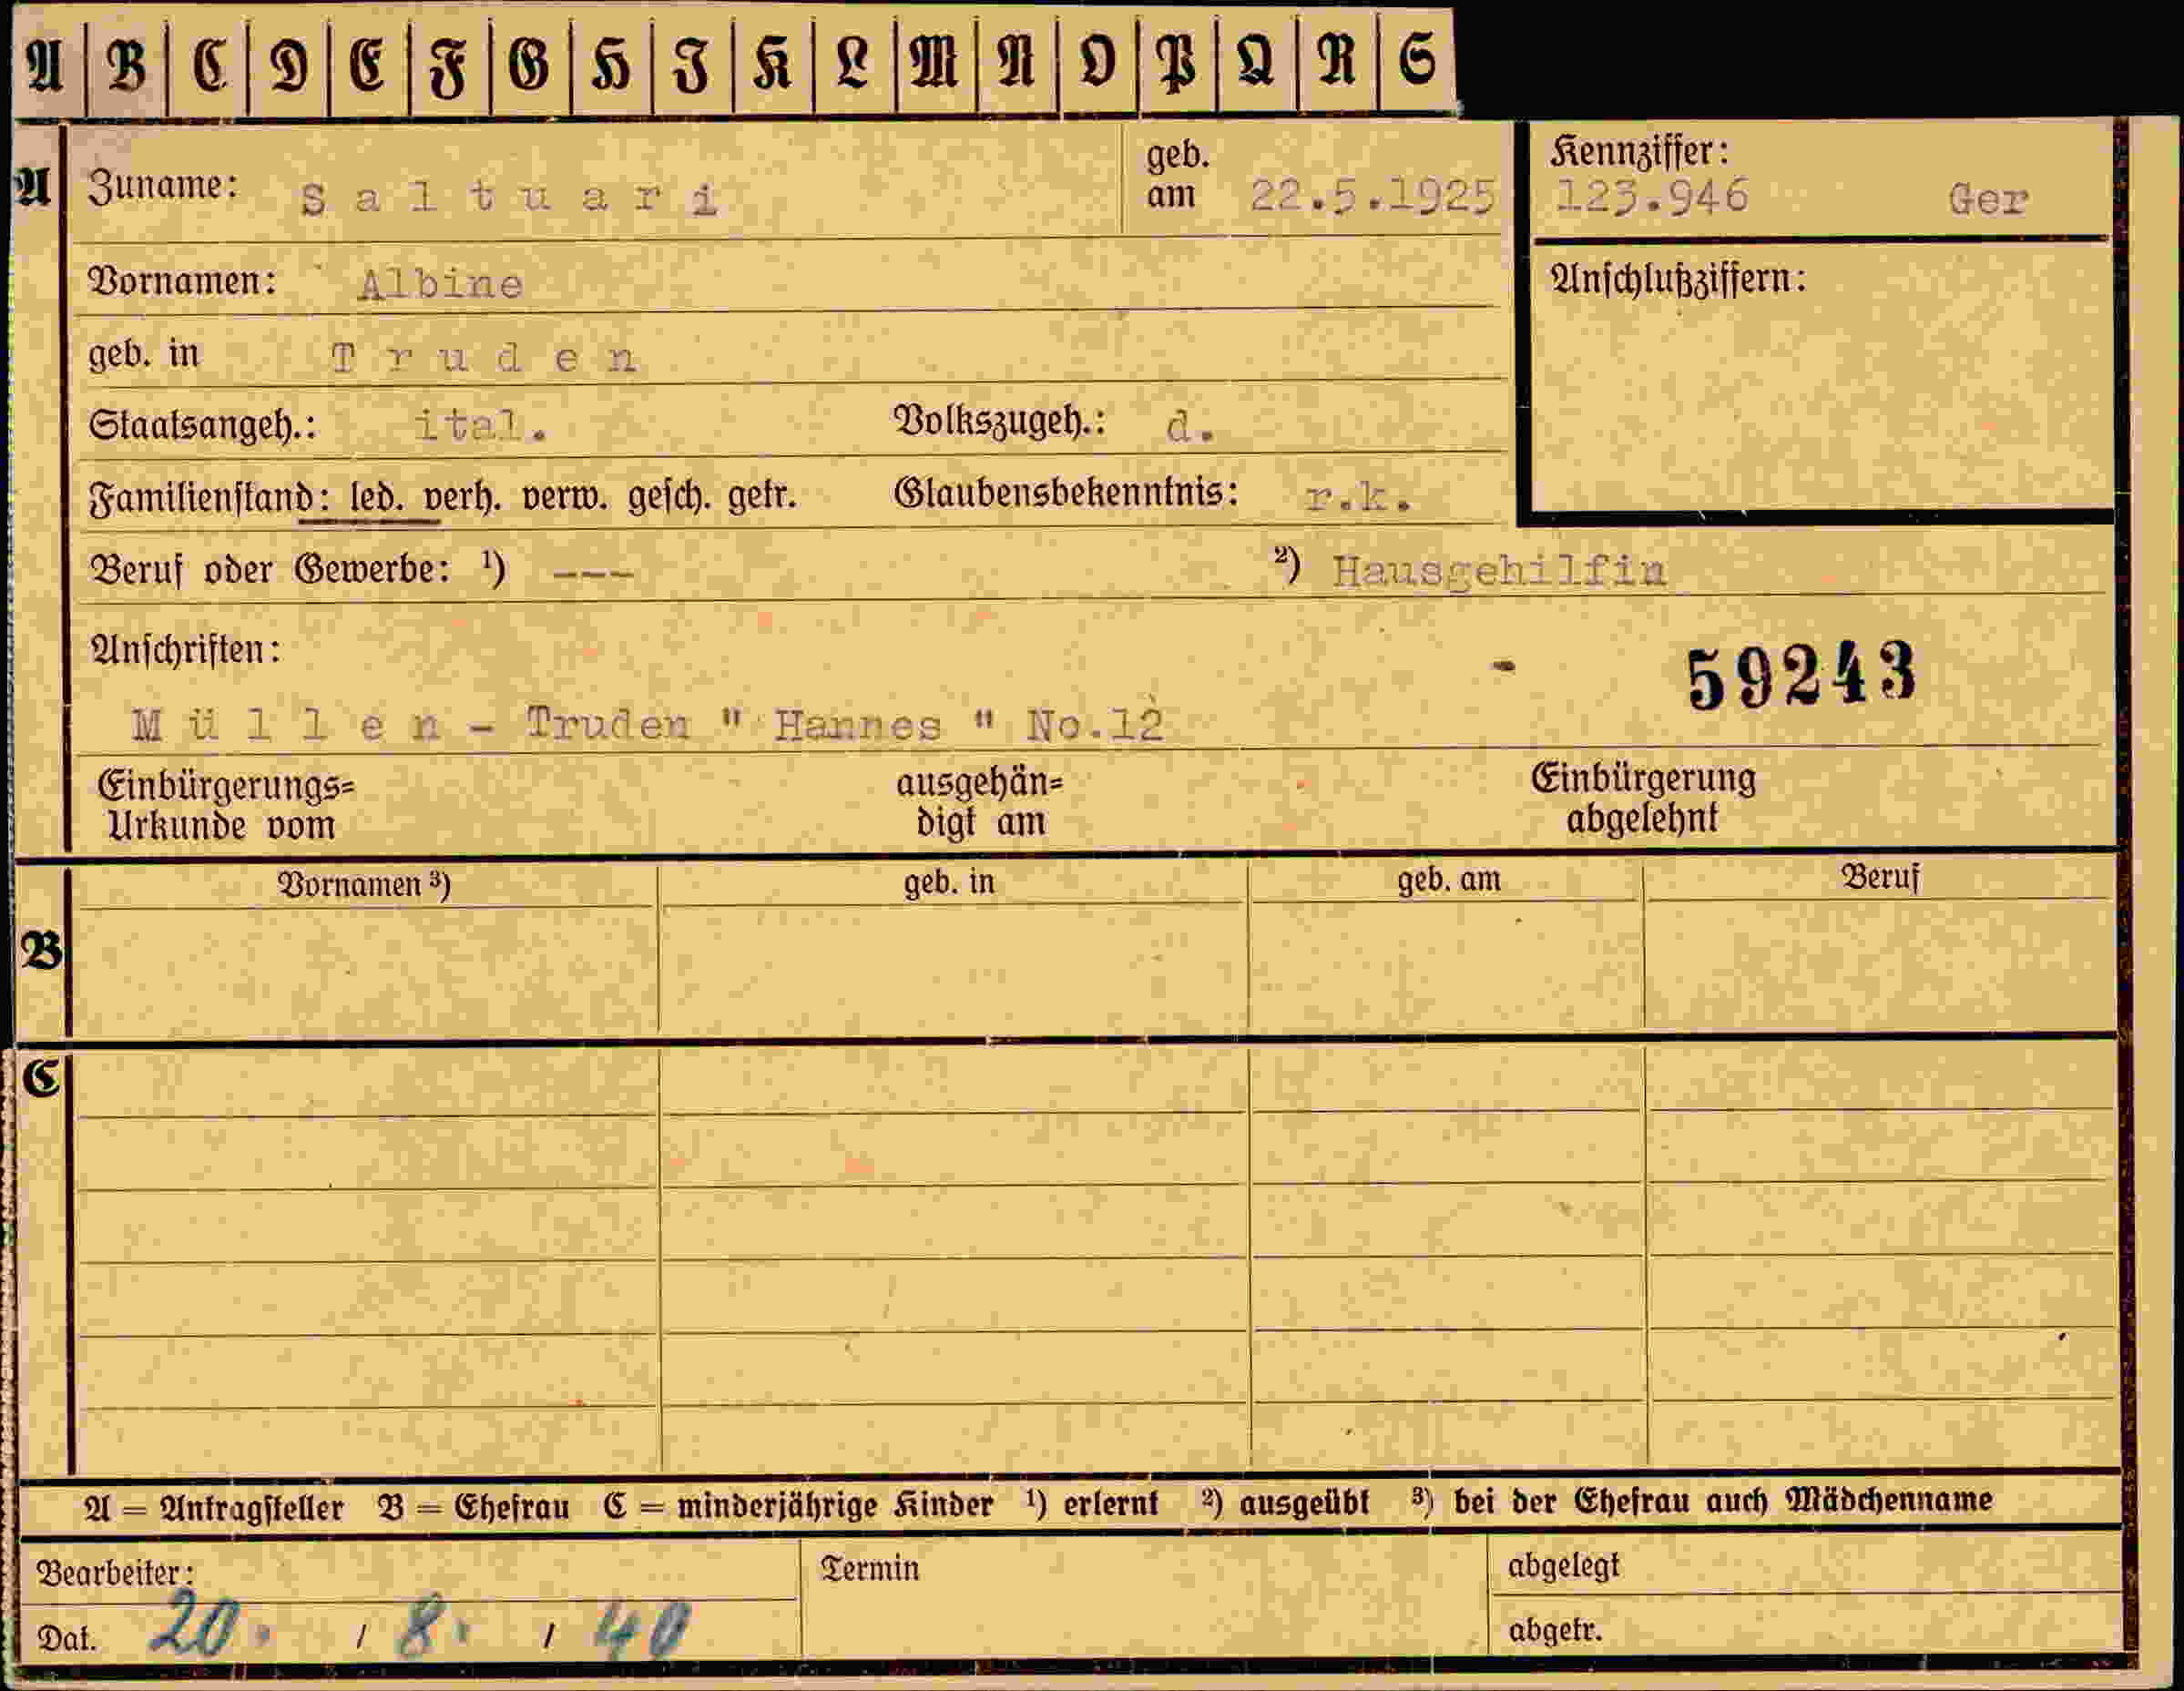 A B C D E F G H I K L M N O P Q R S
A Zuname: Saltuari geb. am 22.5.1925 Kennziffer: 123.946 Ger
Vornamen: Albine Anschlußziffern:
geb. in Truden
Staatsangeh.: ital. Volkszugeh.: d.
Familienstand: led. verh. verw. gesch. getr. Glaubensbekenntnis: r.k.
Beruf oder Gewerbe: ¹) --- ²) Hausgehilfin
Anschriften: - 59243
Müllen - Truden " Hannes " No.12
Einbürgerungs= ausgehän= Einbürgerung
Urkunde vom digt am abgelehnt
Vornamen ³) geb. in geb. am Beruf
B
C
A = Antragsteller B = Ehefrau C = minderjährige Kinder ¹) erlernt ²) ausgeübt ³) bei der Ehefrau auch Mädchenname
Bearbeiter: Termin abgelegt
Dat. 20. / 8. / 40 abgetr.